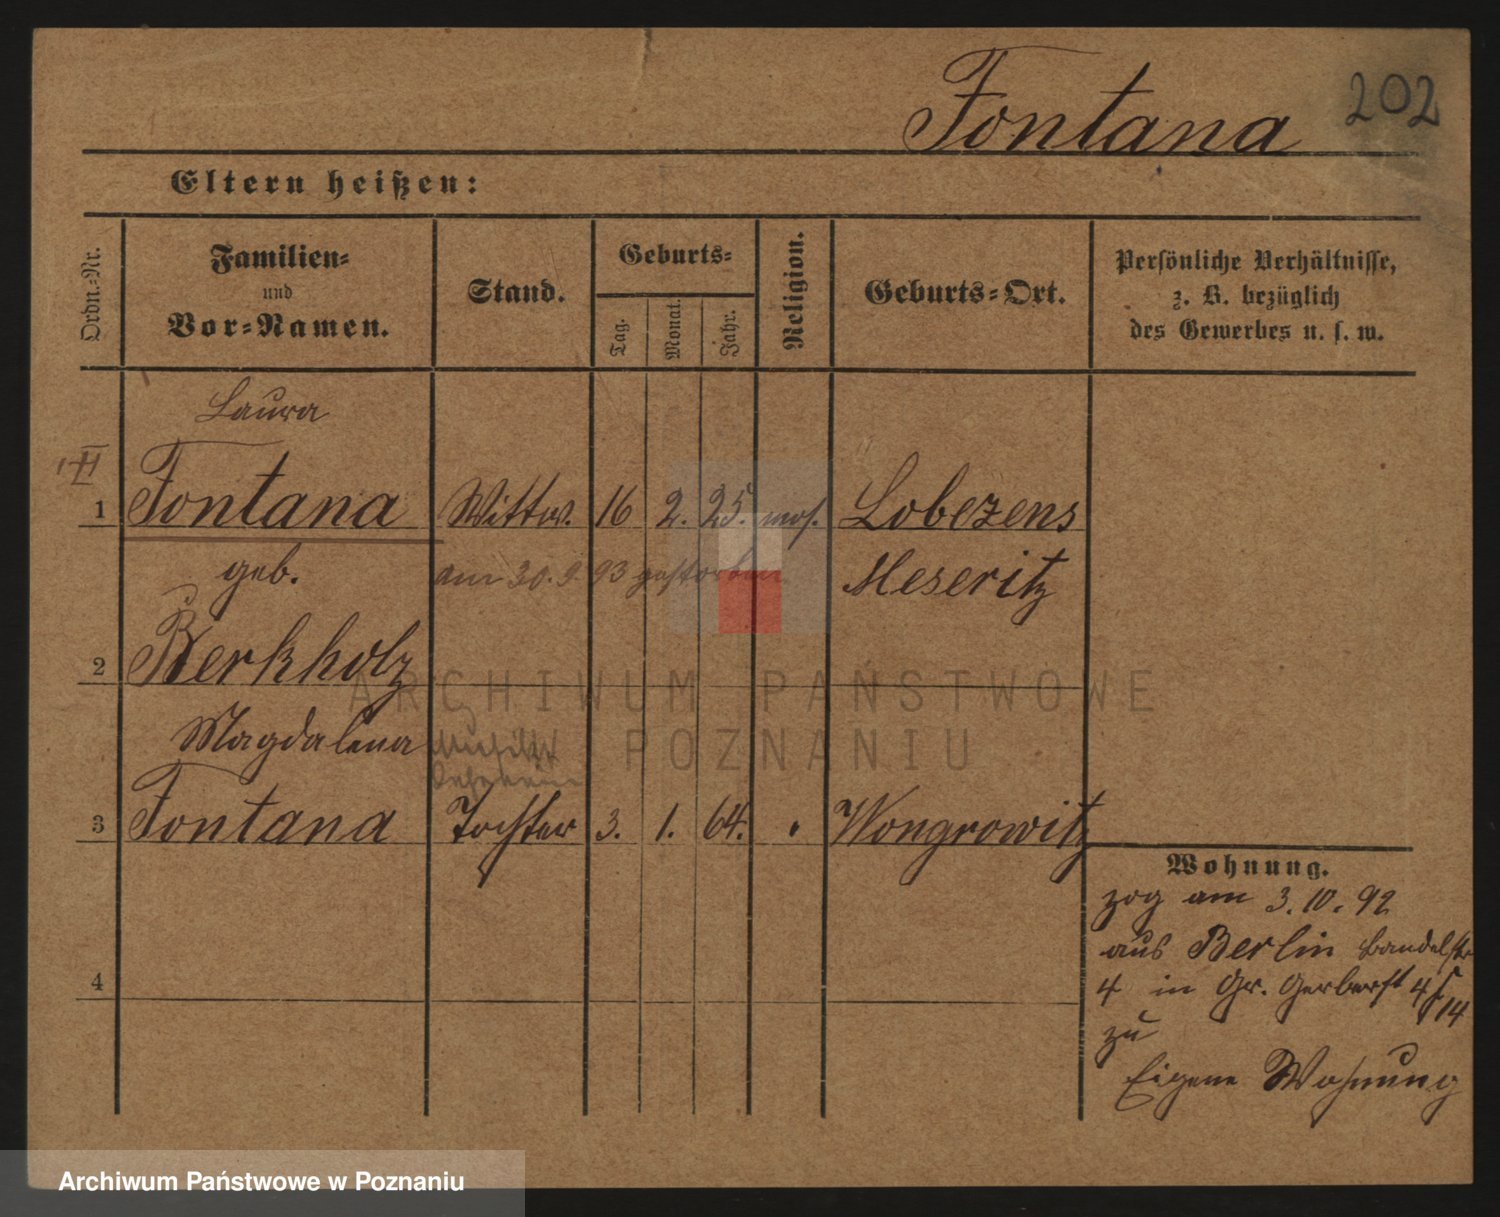 Fontana
202
Eltern heißen:
Ordn.-Nr.
Familien-
und
Vor-Namen.
Stand.
Geburts-
Tag.
Monat.
Jahr.
Religion.
Geburts-Ort.
Persönliche Verhältnisse,
z. B. bezüglich
des Gewerbes u. s. w.
Laura
1 Fontana Wittw. 16 2. 25. mos. Lobezens
geb. am 30. 9. 93 gestorben Meseritz
2 Berkholz
Magdalena
3 Fontana Tochter 3. 1. 64. Wongrowitz
4
Wohnung.
zog am 3. 10. 92
aus Berlin
4 in Gr. Gerberst 4
14
zu
Eigene Wohnung
ARCHIWUM PAŃSTWOWE
W POZNANIU
Archiwum Państwowe w Poznaniu